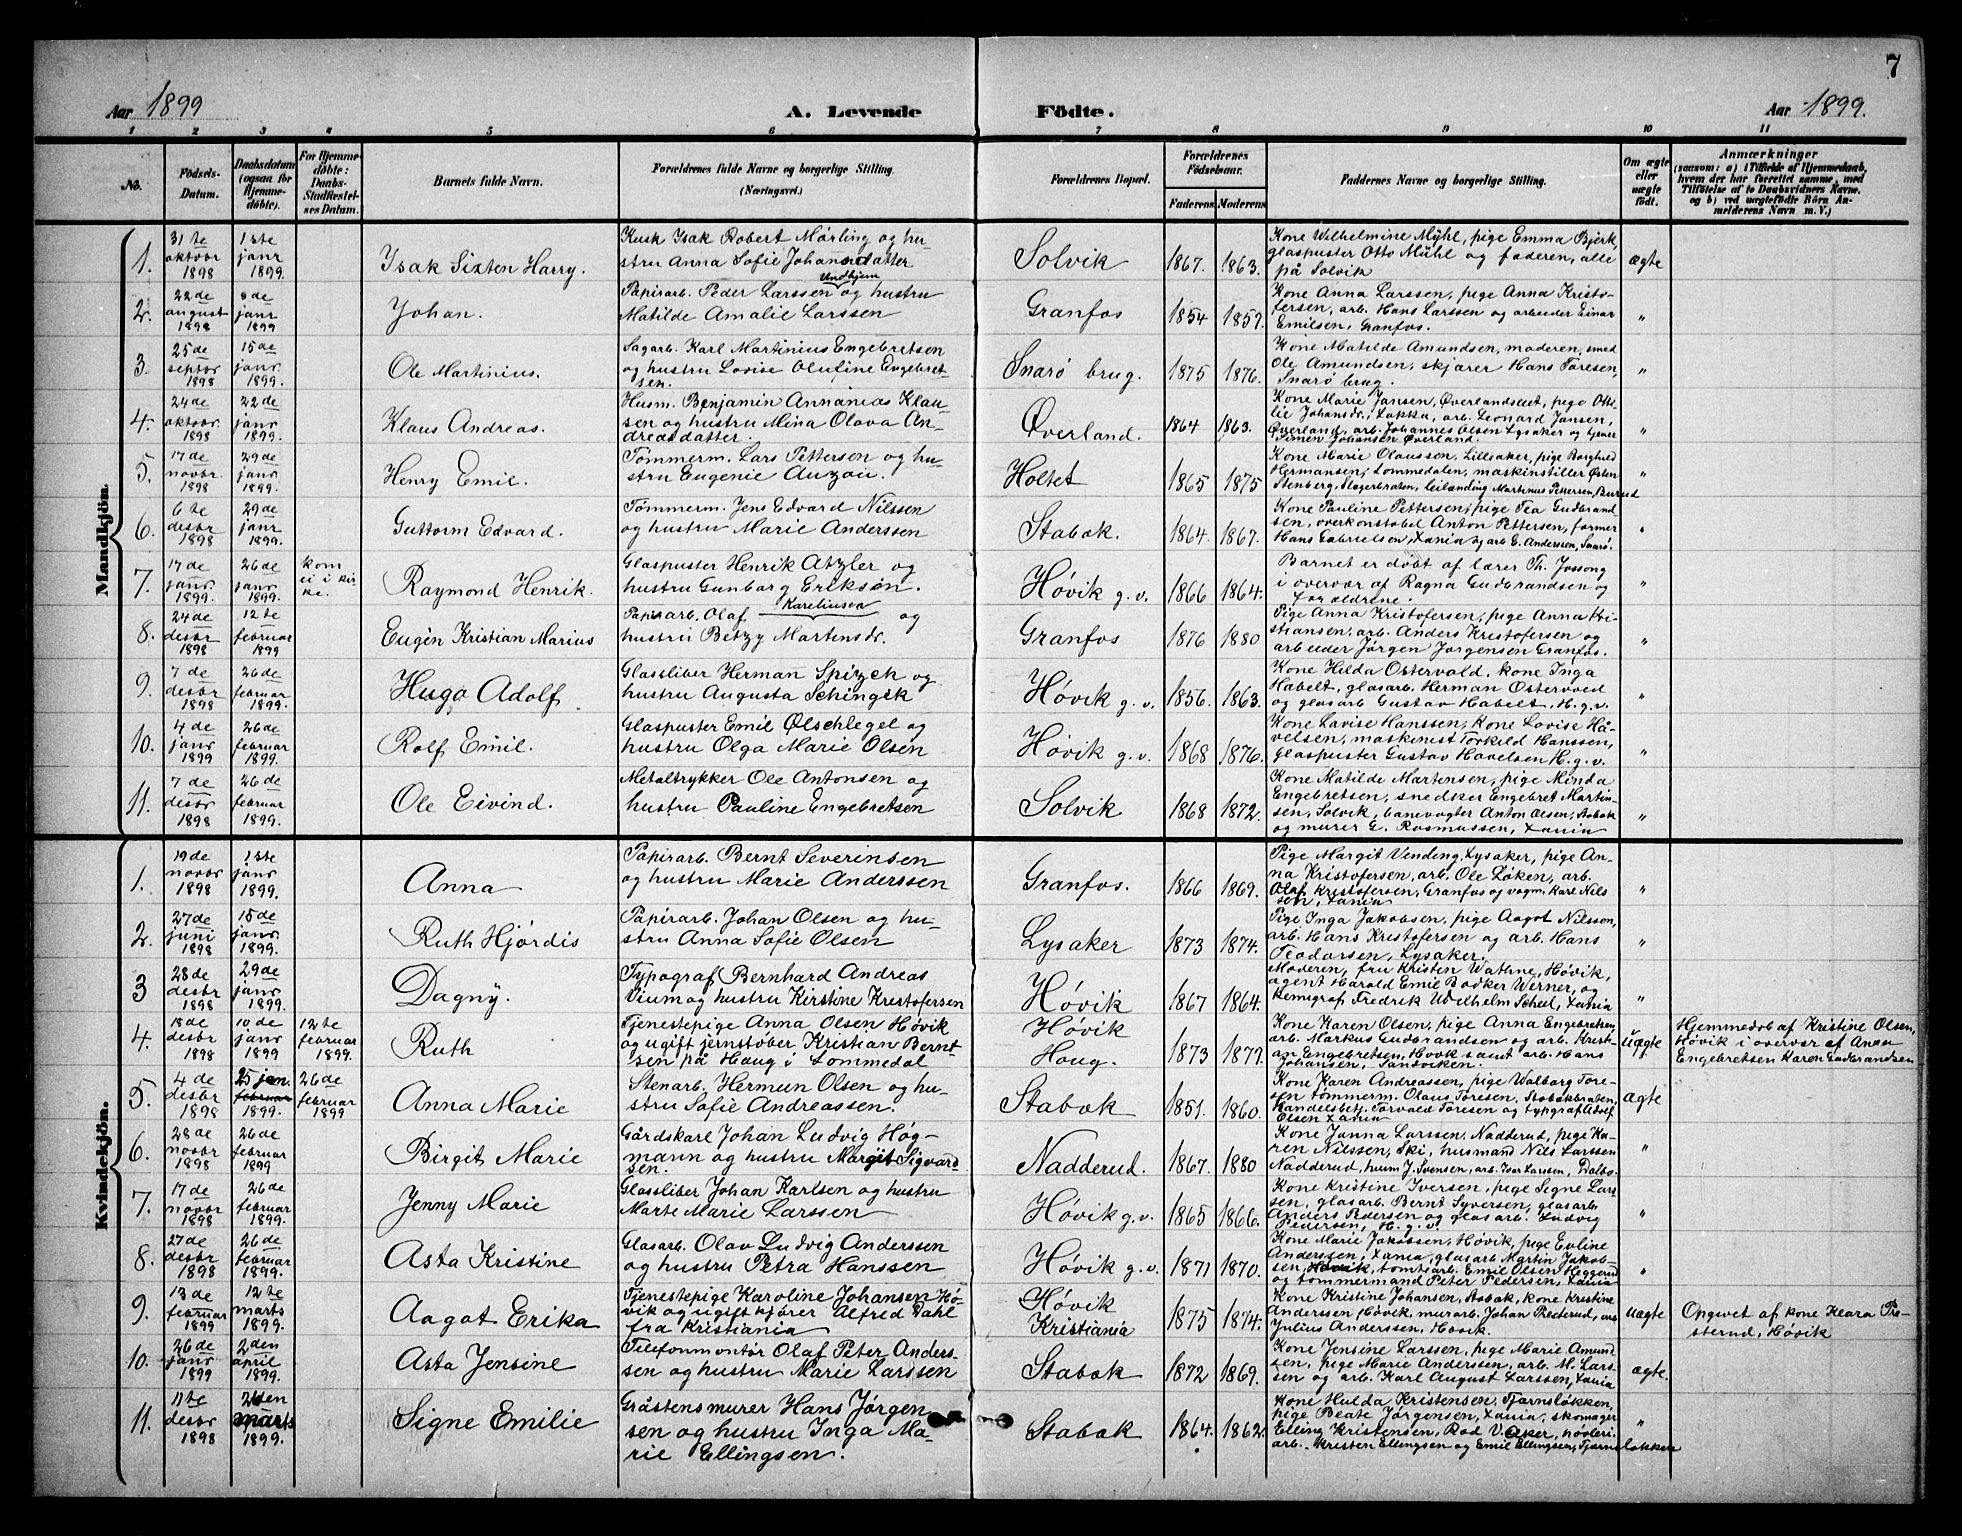 7
Aar 1899
A. Levende Födte.
Aar 1899.
1 2 3 4 5 6 7 8 9 10 11
No. Födsels-Datum. Daabsdatum (ogsaa for Hjemme-döbte). For Hjemme-döbte: Daabs-Stadfæstel-ses Datum. Barnets fulde Navn. Forældrenes fulde Navne og borgerlige Stilling. (Næringsvei.) Forældrenes Bopæl. Forældrenes Födselsaar. Faderens. Moderens. Faddernes Navne og borgerlige Stilling. Om ægte eller uægte födt. Anmærkninger (saasom: a) i Tilfælde af Hjemmedaab, hvem der har forrettet samme, med Tilföielse af to Daabsvidners Navne, og b) ved uægtefödte Börn An-melderens Navn m. V.)
Mandkjön.
1. 31te oktobr 1898 1ste janr 1899. Isak Sixten Harry. Kusk Isak Robert Mörling og hu-
stru Anna Sofie Johansdatter Solvik 1867. 1863. Kone Wilhelmine Mühl, pige Emma Bjerk,
glaspuster Otto Mühl og faderen, alle
på Solvik ægte
2. 22de august 1898 8de janr 1899 Johan. Papirarb. Peder Larssen Undhjem og hustru
Matilde Amalie Larssen Granfos 1854 1857. Kone Anna Larssen, pige Anna Kristo-
fersen, arb. Hans Larssen og arbeider Einar
Emilsen, Granfos. "
3. 25de septbr 1898 15de janr 1899. Ole Martinius. Sagarb. Karl Martinius Engebretsen
og hustru Lovise Olufine Engebret-
sen. Snarø brug. 1875 1876. Kone Matilde Amundsen, moderen, smed
Ole Amundsen, skjærer Hans Toresen,
Snarø brug. "
4. 24de oktobr 1898 22de janr 1899 Klaus Andreas. Husm. Benjamin Annanias Klau-
sen og hustru Mina Olava An-
dreasdatter. Øverland. 1864 1863. Kone Marie Jansen, Øverlandseiet, pige Otti-
lie Johansdr., Løkka, arb. Leonard Jansen,
Øverland, arb. Johannes Olsen Lysaker og tjener
Simen Johansen Øverland. "
5. 17de novbr 1898 29de janr 1899. Henry Emil. Tømmerm. Lars Pettersen og hu-
stru Eugenie Auzou. Holtet 1865 1875 Kone Marie Olaussen, Lilleaker, pige Borghild
Hermansen, Lommedalen, maskinstiller Østen
Stenberg, Slagerbraten, leilænding Martinus Pettersen, Burud "
6. 6te desbr 1898 29de janr 1899. Guttorm Edvard. Tømmerm. Jens Edvard Nilssen
og hustru Marie Anderssen Stabæk. 1864. 1867. Kone Pauline Pettersen, pige Tea Gudbrand-
sen, overkonstabel Anton Pettersen, former
Hans Gabrielsen, Xania og arb. E. Anderssen, Snarø. "
7. 17de janr 1899. 26de janr 1899. kom ei i kir-ke. Raymond Henrik. Glaspuster Henrik Atzler og
hustru Gunborg Erikson. Høvik g.v. 1866 1864. Barnet er døbt af lærer Th. Jossong
i overvær af Ragna Gudbrandsen og
forældrene. "
8. 24de desbr 1898 12te februar 1899 Eugén Kristian Marius Papirarb. Olaf Kareliusen og
hustru Betzy Martensdr. Granfos 1876 1880 Pige Anna Kristofersen, pige Anna Kri-
stiansen, arb. Anders Kristofersen og
arbeider Jørgen Jørgensen Granfos. "
9. 7de desbr 1898 26de februar 1899. Hugo Adolf Glassliber Herman Spizeck og
hustru Augusta Schingek Høvik g.v. 1856. 1863. Kone Hilda Ostervald, kone Inga
Habelt, glasarb. Herman Ostervoed
og glasarb Gustav Habelt, H. g. v. "
10. 4de janr 1899 26de februar 1899. Rolf Emil. Glaspuster Emil Ølschlegel og
hustru Olga Marie Olsen Høvik g.v. 1868 1876. Kone Lavise Hanssen, kone Lovise Hå-
velsen, maskinist Torkild Hanssen,
glaspuster Gustav Havelsen H. g. v. "
11. 7de desbr 1898 26de februar 1899. Ole Eivind. Metaltrykker Ole Antonsen og
hustru Pauline Engebretsen Solvik 1868 1872. Kone Matilde Martensen, pige Minda
Engebretsen, snedker Engebret Martin-
sen, Solvik, banevogter Anton Olsen, Stabæk
og murer G. Rasmussen, Xania "
Kvindekjön.
1. 19de novbr 1898 1ste janr 1899. Anna Papirarb. Bernt Severinsen
og hustru Marie Anderssen Granfos. 1866 1869. Pige Margit Vending, Lysaker, pige An-
na Kristofersen, arb. Ole Løken, arb.
Olaf Kristofersen, Granfos og vogm. Karl Nils
sen, Xania "
2. 27de juni 1898 15de janr 1899. Ruth Hjørdis Papirarb. Johan Olsen og hu-
stru Anna Sofie Olsen Lysaker 1873 1874. Pige Inga Jakobsen, pige Aagot Nilsson,
arb. Hans Kristofersen og arb. Hans
Teodorsen, Lysaker. "
3 28de desbr 1898 29de janr 1899. Dagny. Typograf Bernhard Andreas
Vium og hustru Kirstine Kristofersen Høvik 1867 1864. Moderen, fru Kristen Wathne, Høvik,
agent Harald Emil Bødker Werner, og
kemigraf Fredrik Wilhelm Scheel, Xania "
4. 18de desbr 1898 10de janr 1899 12te februar 1899. Ruth Tjenestepige Anna Olsen Høvik
og ugift jernstøber Kristian Bernt-
sen på Haug i Lommedal Høvik
Haug. 1873 1877. Kone Karen Olsen, pige Anna Engebretsen,
arb. Markus Gudbrandsen og arb. Kristi-
an Engebretsen, Høvik samt arb. Hans
Johansen, Sandviken. uægte Hjemmedøb af Kristine Olsen,
Høvik i overvær af Anna
Engebretsen Karen Gudbrandsen
5. 4de desbr 1898 25 jan. februar 1899. 26de februar 1899 Anna Marie Stenarb. Hermun Olsen og hu-
stru Sofie Andreassen. Stabæk 1851. 1860. Kone Karen Andreassen, pige Walborg Tore-
sen tømmerm. Olaus Toresen, Stabækbraten,
Handelsbetj. Torvald Toresen og typograf Adolf
Olsen Xania ægte
6. 28de novbr 1898 26de februar 1899 Birgit Marie Gårdskarl Johan Ludvig Høg-
mann og hustru Margit Sigvard-
sen. Nadderud. 1867. 1880 Kone Janna Larssen, Nadderud, pige Ka-
ren Nilssen, Ski, husmand Nils Larssen
Nadderud, husm J. Svensen, arb. Ivar Larssen, Dalbo. "
7. 17de novbr 1898 26de februar 1899. Jenny Marie Glassliber Johan Karlsen og hustru
Marte Marie Larssen Høvik g.v. 1865 1866. Kone Kristine Iversen, pige Signe Lars
sen, glasarb. Bernt Syversen, glasarb.
Anders Pedersen og glasarb. Ludvig
Pedersen, H. g. v. "
8. 27de desbr 1898 26de februar 1899. Asta Kristine Glasarb. Olav Ludvig Anderssen
og hustru Petra Hanssen Høvik g.v. 1871 1870. Kone Marie Jakobsen, Høvik, pige Evline
Anderssen, Xania, glasarb Martin Jakob-
sen, Høvik, tomtearb. Emil Olsen Heggerud
og tømmermand Peter Pedersen, Xania "
9. 13de februar 1899 12te marts 1899. Aagot Erika Tjenestepige Karoline Johansen Hø-
vik og ugift kjører Alfred Dahl
fra Kristiania Høvik
Kristiania 1875 1874. Kone Kristine Johansen, Stabæk, kone Kristine
Anderssen, Høvik, murarb. JohanRæderud, arb
Julius Anderssen, Høvik. uægte Opgivet af kone Klara Pre-
sterud, Høvik
10. 26de janr 1899 2den april 1899. Asta Jensine Telefonmontør Olaf Peter Anders-
sen og hustru Marie Larssen Stabæk 1872 1869. Kone Jensine Larssen, pige Marie Amund
sen, pige Marie Anderssen, arb. M. Lars-
sen og arb. Karl August Larssen, Xania ægte.
11. 11te desbr 1898 marts 1899. Signe Emilie Gråstensmurer Hans Jørgen
sen og hustru Inga Ma-
rie Ellingsen. Stabæk 1864. 1862. Kone Hulda Kristensen, Tjærnsløkken,
pige Beate Jørgensen, Xania, skomager
Elling Kristensen, Rød V. Aker, høvleri-
arb. Kristen Ellingsen og Emil Ellingsen, Tjærnsløkken "